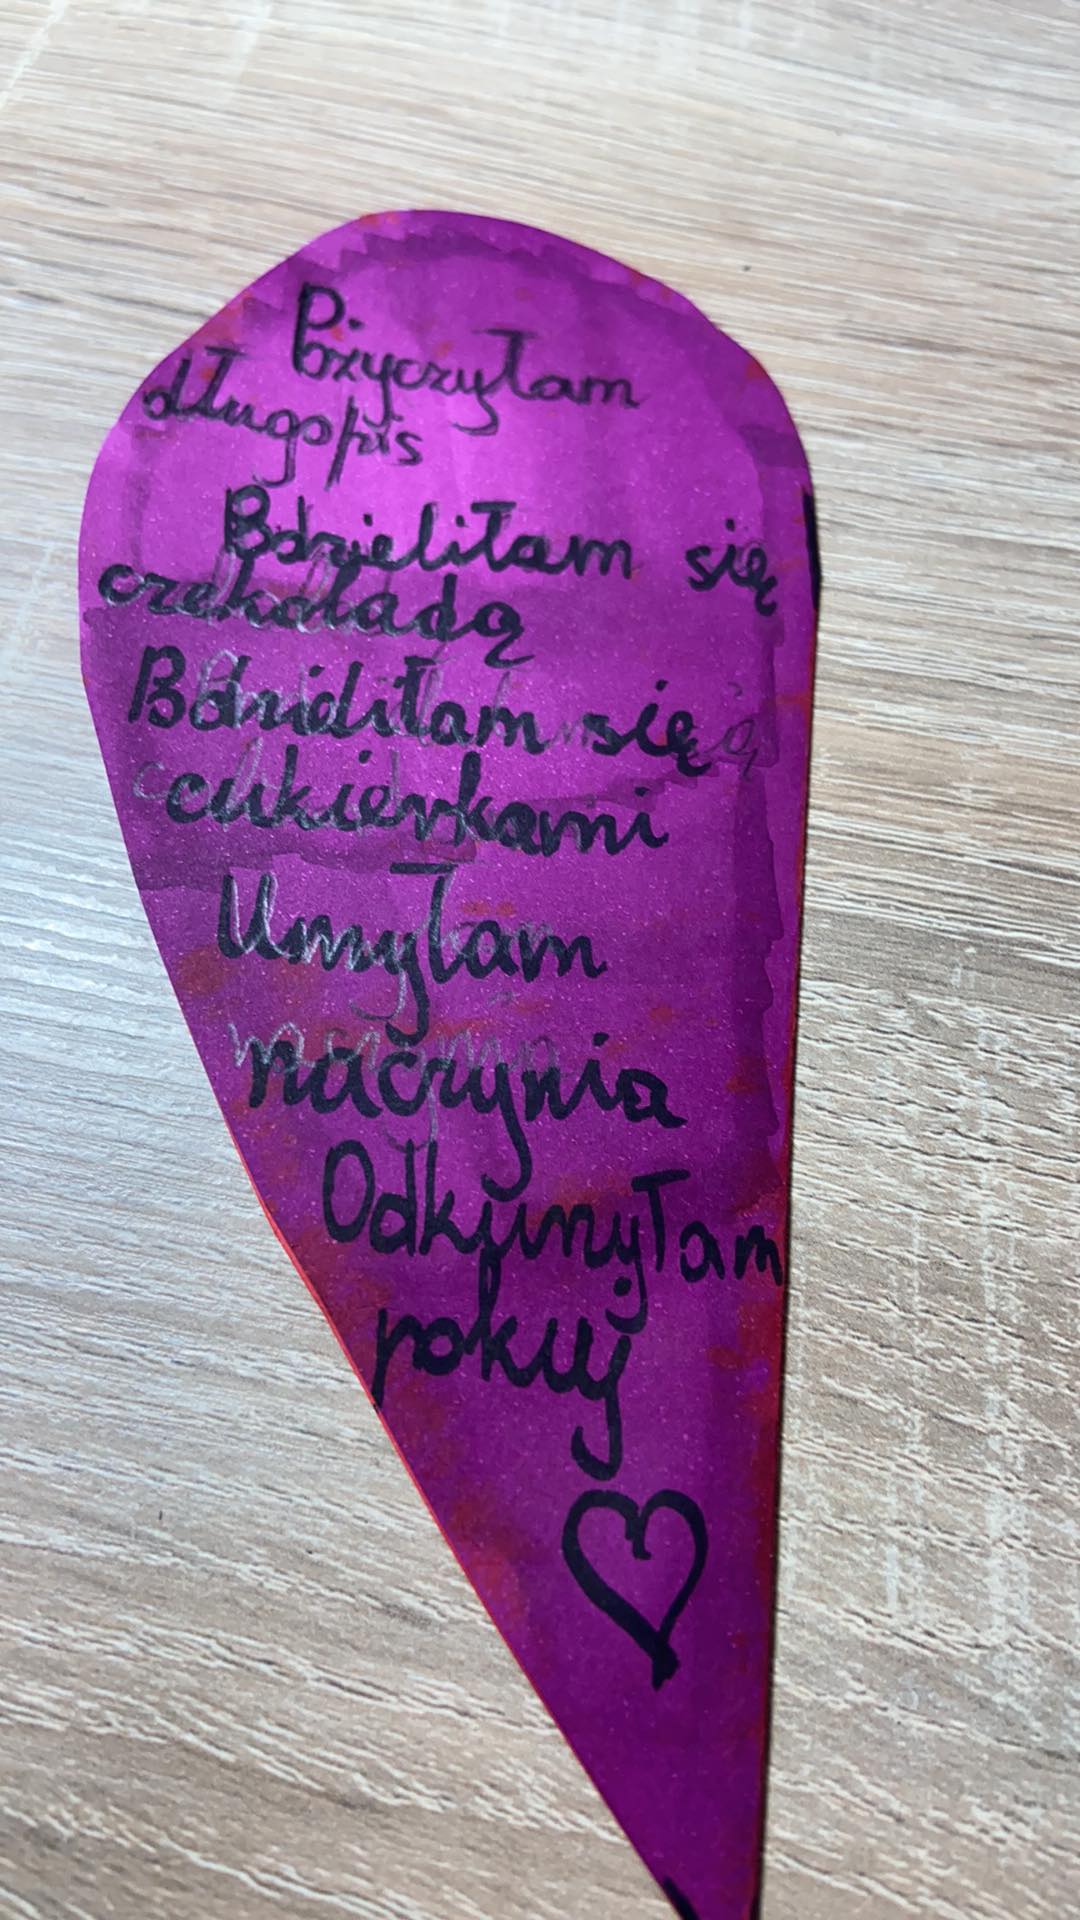 Pożyczyłam
długopis
Podzieliłam się
czekoladą
Podzieliłam się
cukierkami
Umyłam
naczynia
Odkurzyłam
pokuj